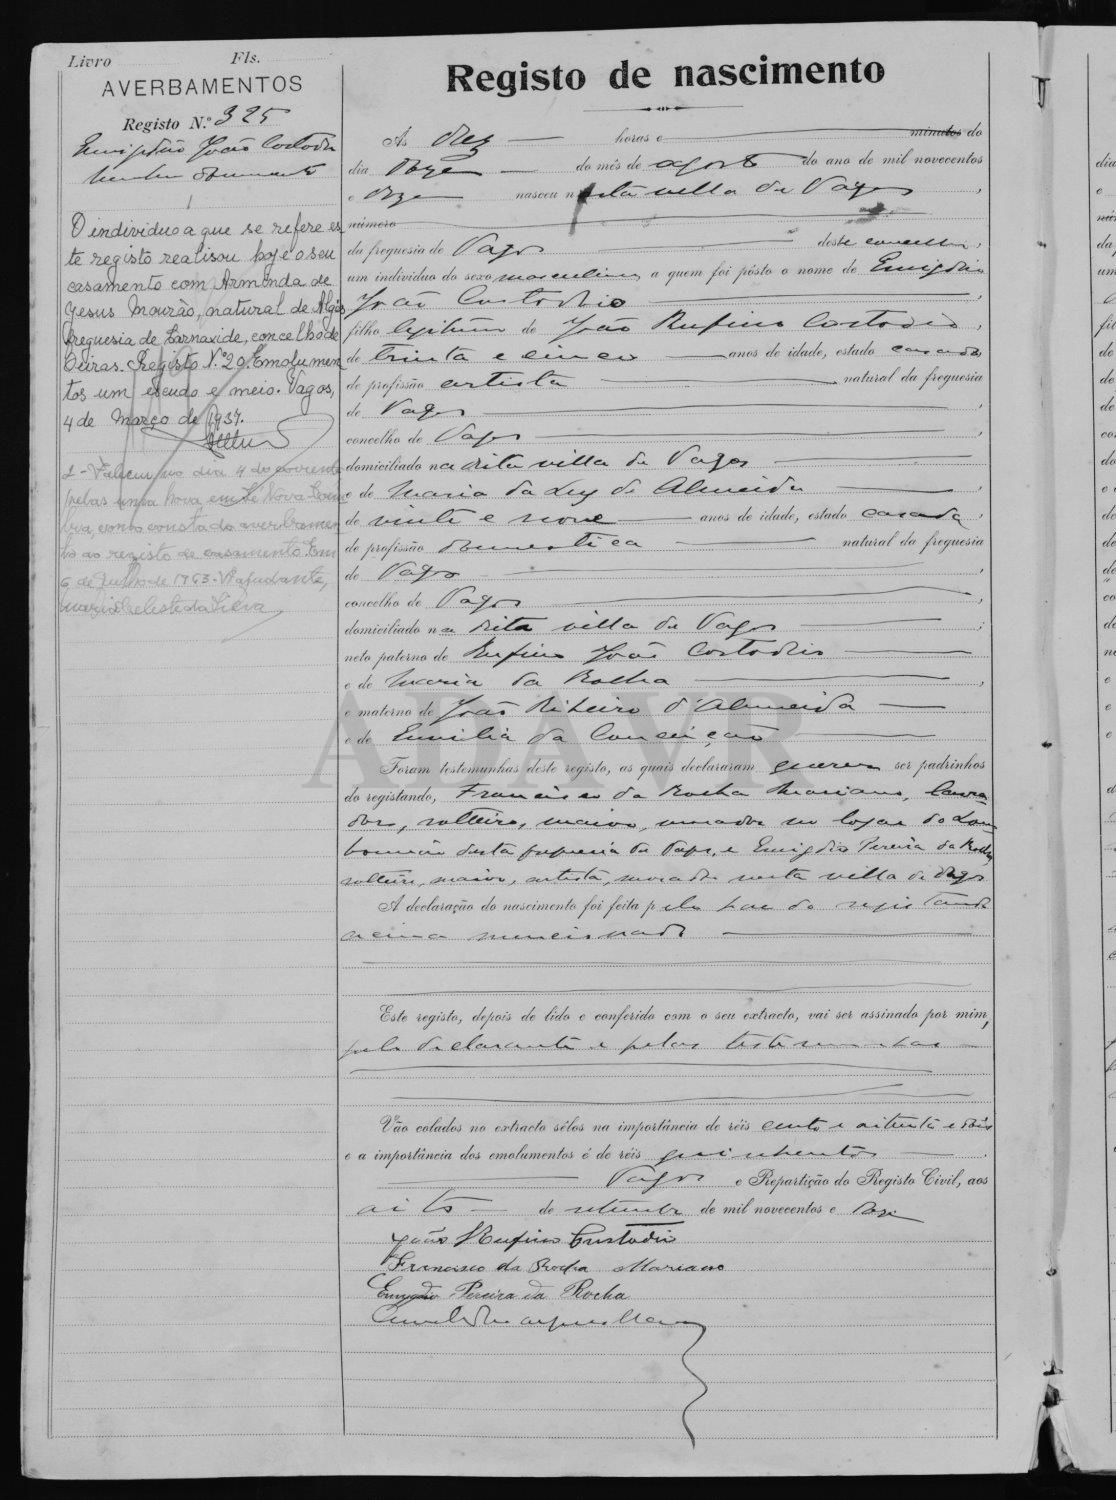 Livro Fls.
AVERBAMENTOS
Registo N.º 325
Emigdio João Costodio
O individuo a que se refere es
te registo realisou hoje o seu
casamento com Arminda de
Jesus Mourão, natural de Algés
freguesia de Carnaxide, concelho de
Oeiras. Registo N.º 20. Emolumen
tos um escudo e meio. Vagos,
4 de Março de 1937.
2 - Faleceu no dia 4 do corrente
pelas uma hora em
como consta do averbamen
to ao registo de casamento. Em
6 de Julho de 1963. A ajudante,
Maria Celeste da Silva
Registo de nascimento
Ás dez horas e minutos do
dia do mês de agosto do ano de mil novecentos
e nasceu nesta villa de Vagos,
número
da freguesia de Vagos deste concelho,
um individuo do sexo masculino a quem foi pôsto o nome de Emigdio
João Costodio,
filho legitimo de João Rufino Costodio,
de trinta e cinco anos de idade, estado casado
de profissão artista natural da freguesia
de Vagos,
concelho de Vagos,
domiciliado na dita villa de Vagos
e de Maria da Luz de Almeida,
de vinte e nove anos de idade, estado casada,
de profissão domestica natural da freguesia
de Vagos,
concelho de Vagos,
domiciliado na dita villa de Vagos;
neto paterno de Rufino João Costodio
e de Maria da Rocha,
e materno de João Ribeiro d'Almeida
e de Emilia da Conceição
Foram testemunhas deste registo, as quais declararam querer ser padrinhos
do registando, Francisco da Rocha Mariano, lavra-
dor, solteiro, maior, morador no logar do
desta freguesia de Vagos, e Emigdio Pereira da Rocha,
solteiro, maior, artista, morador nesta villa de Vagos
A declaração do nascimento foi feita pelo pae do registando
acima mencionado
Este registo, depois de lido e conferido com o seu extracto, vai ser assinado por mim,
pelo declarante e pelas testemunhas
Vão colados no extracto sêlos na importância de réis cento e oitenta e dois
e a importância dos emolumentos é de réis quinhentos.
Vagos e Repartição do Registo Civil, aos
oito de setembro de mil novecentos e
João Rufino Custodio
Francisco da Rocha Mariano
Emygdio Pereira da Rocha
ADAVR